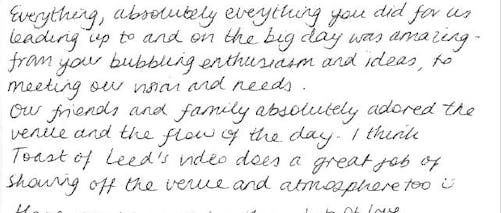 Everything, absolutely everything you did for us
leading up to and on the big day was amazing -
from your bubbling enthusiasm and ideas, to
meeting our vision and needs.
Our friends and family absolutely adored the
venue and the flow of the day. I think
Toast of Leed's video does a great job of
showing off the venue and atmosphere too ☺
of love